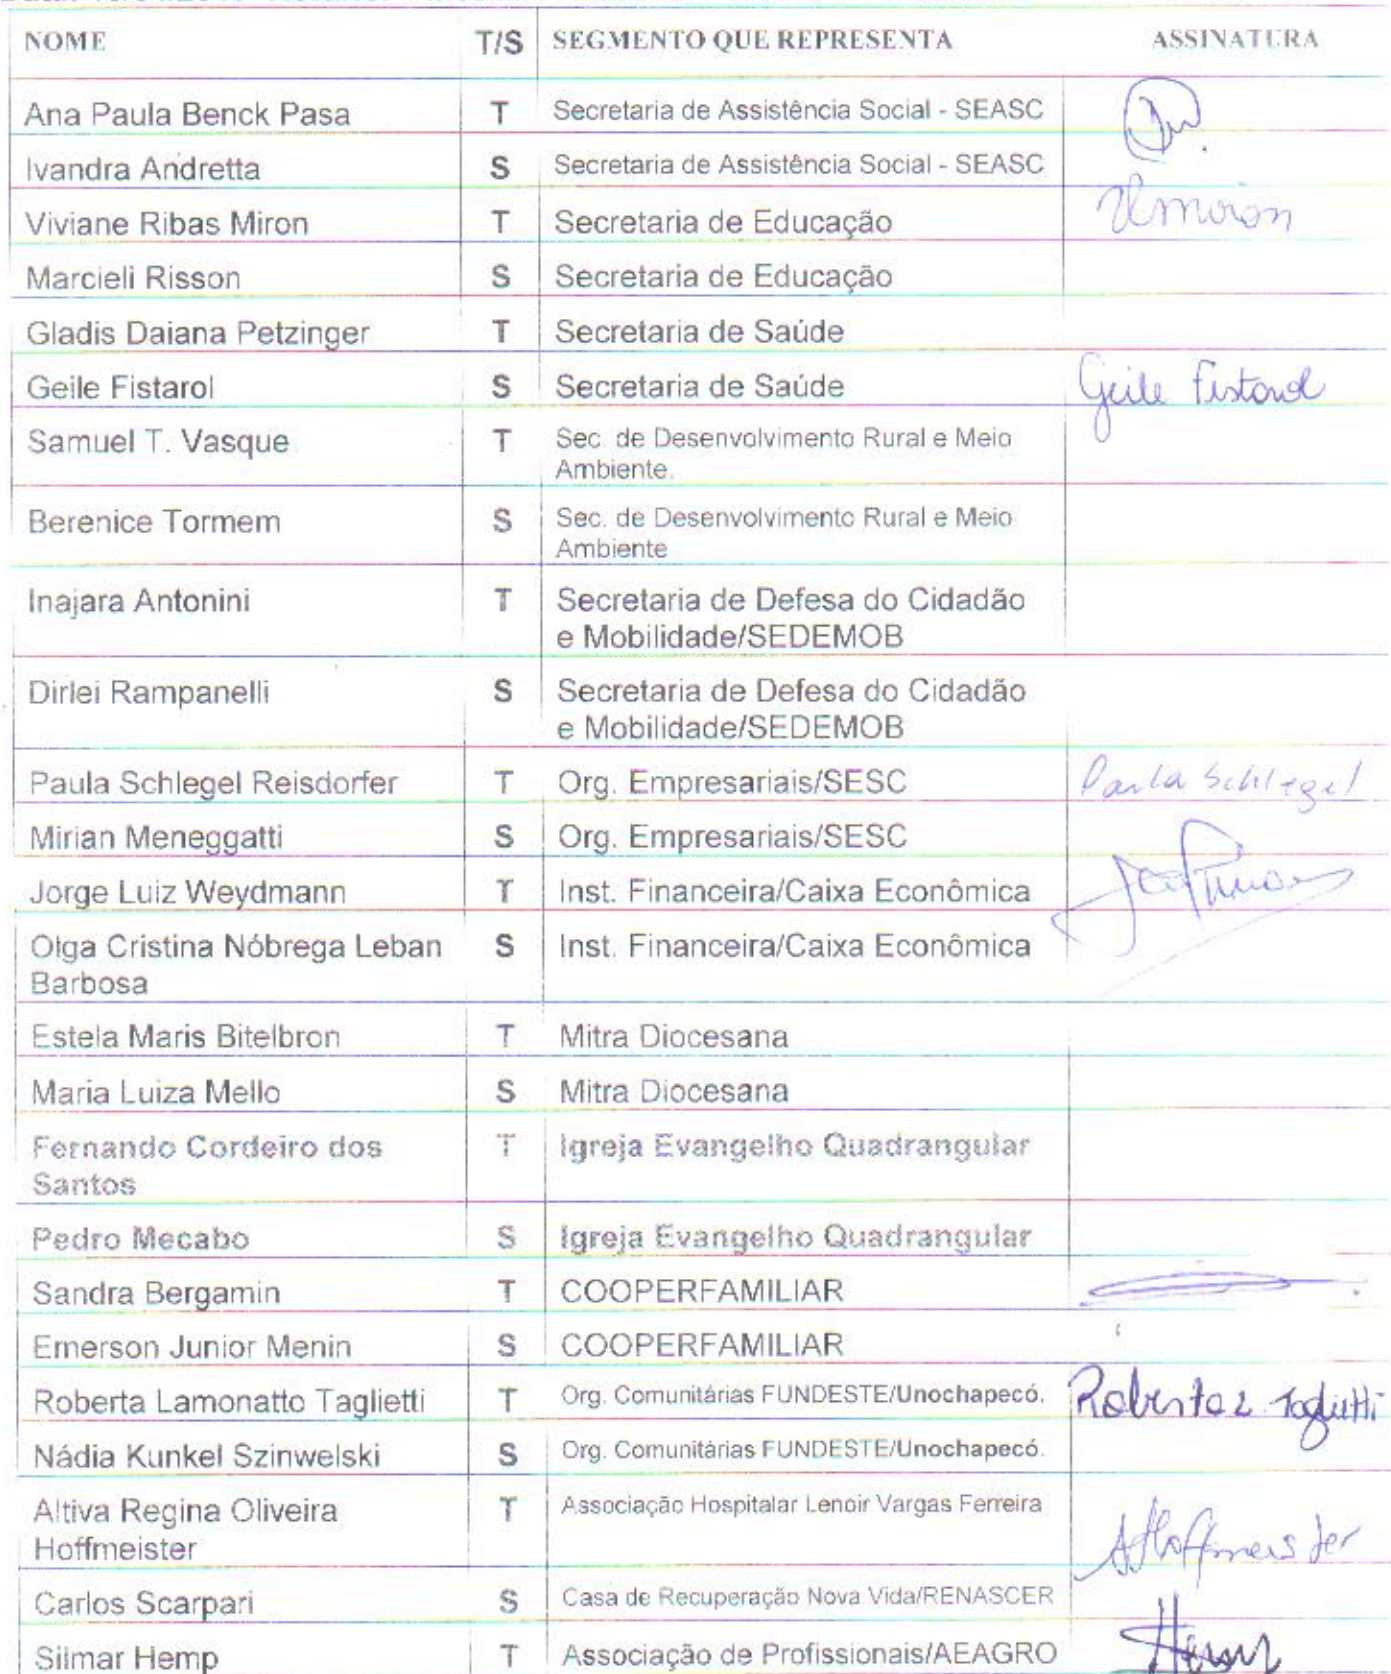 NOME T/S SEGMENTO QUE REPRESENTA ASSINATURA
Ana Paula Benck Pasa T Secretaria de Assistência Social - SEASC
Ivandra Andretta S Secretaria de Assistência Social - SEASC
Viviane Ribas Miron T Secretaria de Educação VRmiron
Marcieli Risson S Secretaria de Educação
Gladis Daiana Petzinger T Secretaria de Saúde
Geile Fistarol S Secretaria de Saúde Geile Fistarol
Samuel T. Vasque T Sec. de Desenvolvimento Rural e Meio
Ambiente.
Berenice Tormem S Sec. de Desenvolvimento Rural e Meio
Ambiente
Inajara Antonini T Secretaria de Defesa do Cidadão
e Mobilidade/SEDEMOB
Dirlei Rampanelli S Secretaria de Defesa do Cidadão
e Mobilidade/SEDEMOB
Paula Schlegel Reisdorfer T Org. Empresariais/SESC Paula Schlegel
Mirian Meneggatti S Org. Empresariais/SESC
Jorge Luiz Weydmann T Inst. Financeira/Caixa Econômica
Olga Cristina Nóbrega Leban S Inst. Financeira/Caixa Econômica
Barbosa
Estela Maris Bitelbron T Mitra Diocesana
Maria Luiza Mello S Mitra Diocesana
Fernando Cordeiro dos T Igreja Evangelho Quadrangular
Santos
Pedro Mecabo S Igreja Evangelho Quadrangular
Sandra Bergamin T COOPERFAMILIAR
Emerson Junior Menin S COOPERFAMILIAR
Roberta Lamonatto Taglietti T Org. Comunitárias FUNDESTE/Unochapecó. Roberta L Taglietti
Nádia Kunkel Szinwelski S Org. Comunitárias FUNDESTE/Unochapecó.
Altiva Regina Oliveira T Associação Hospitalar Lenoir Vargas Ferreira AHoffmeister
Hoffmeister
Carlos Scarpari S Casa de Recuperação Nova Vida/RENASCER
Silmar Hemp T Associação de Profissionais/AEAGRO Hemp